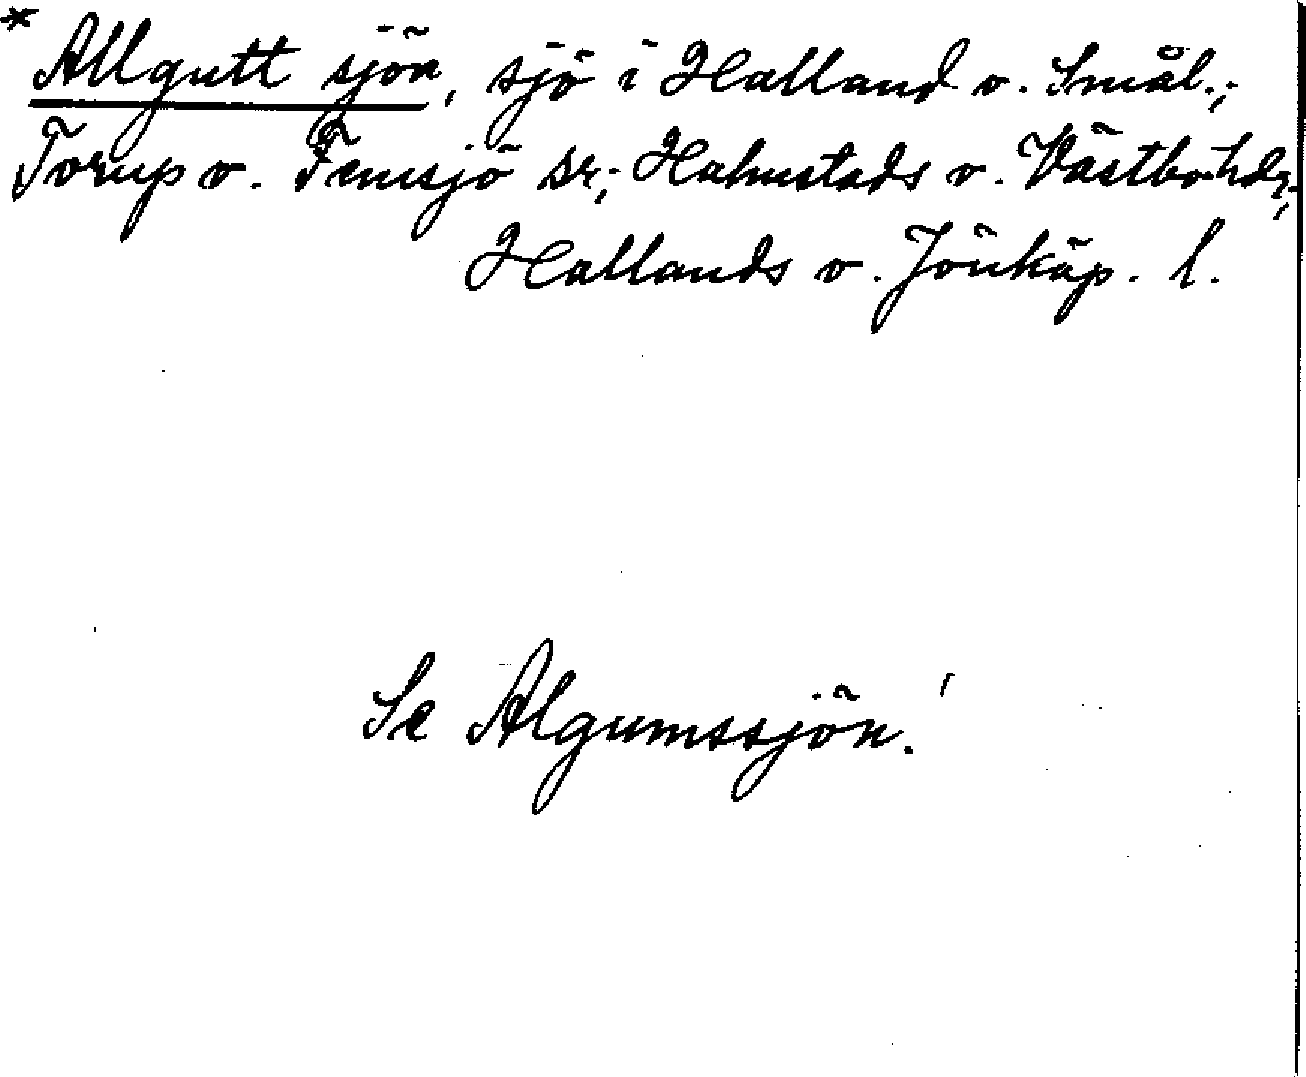 * Allgutt sjön, sjö i Halland o. Smål.;
Torup o. Femsjö sr; Halmstads o. Västbo hdr;
Hallands o. Jönköp. l.
Se Algumssjön!